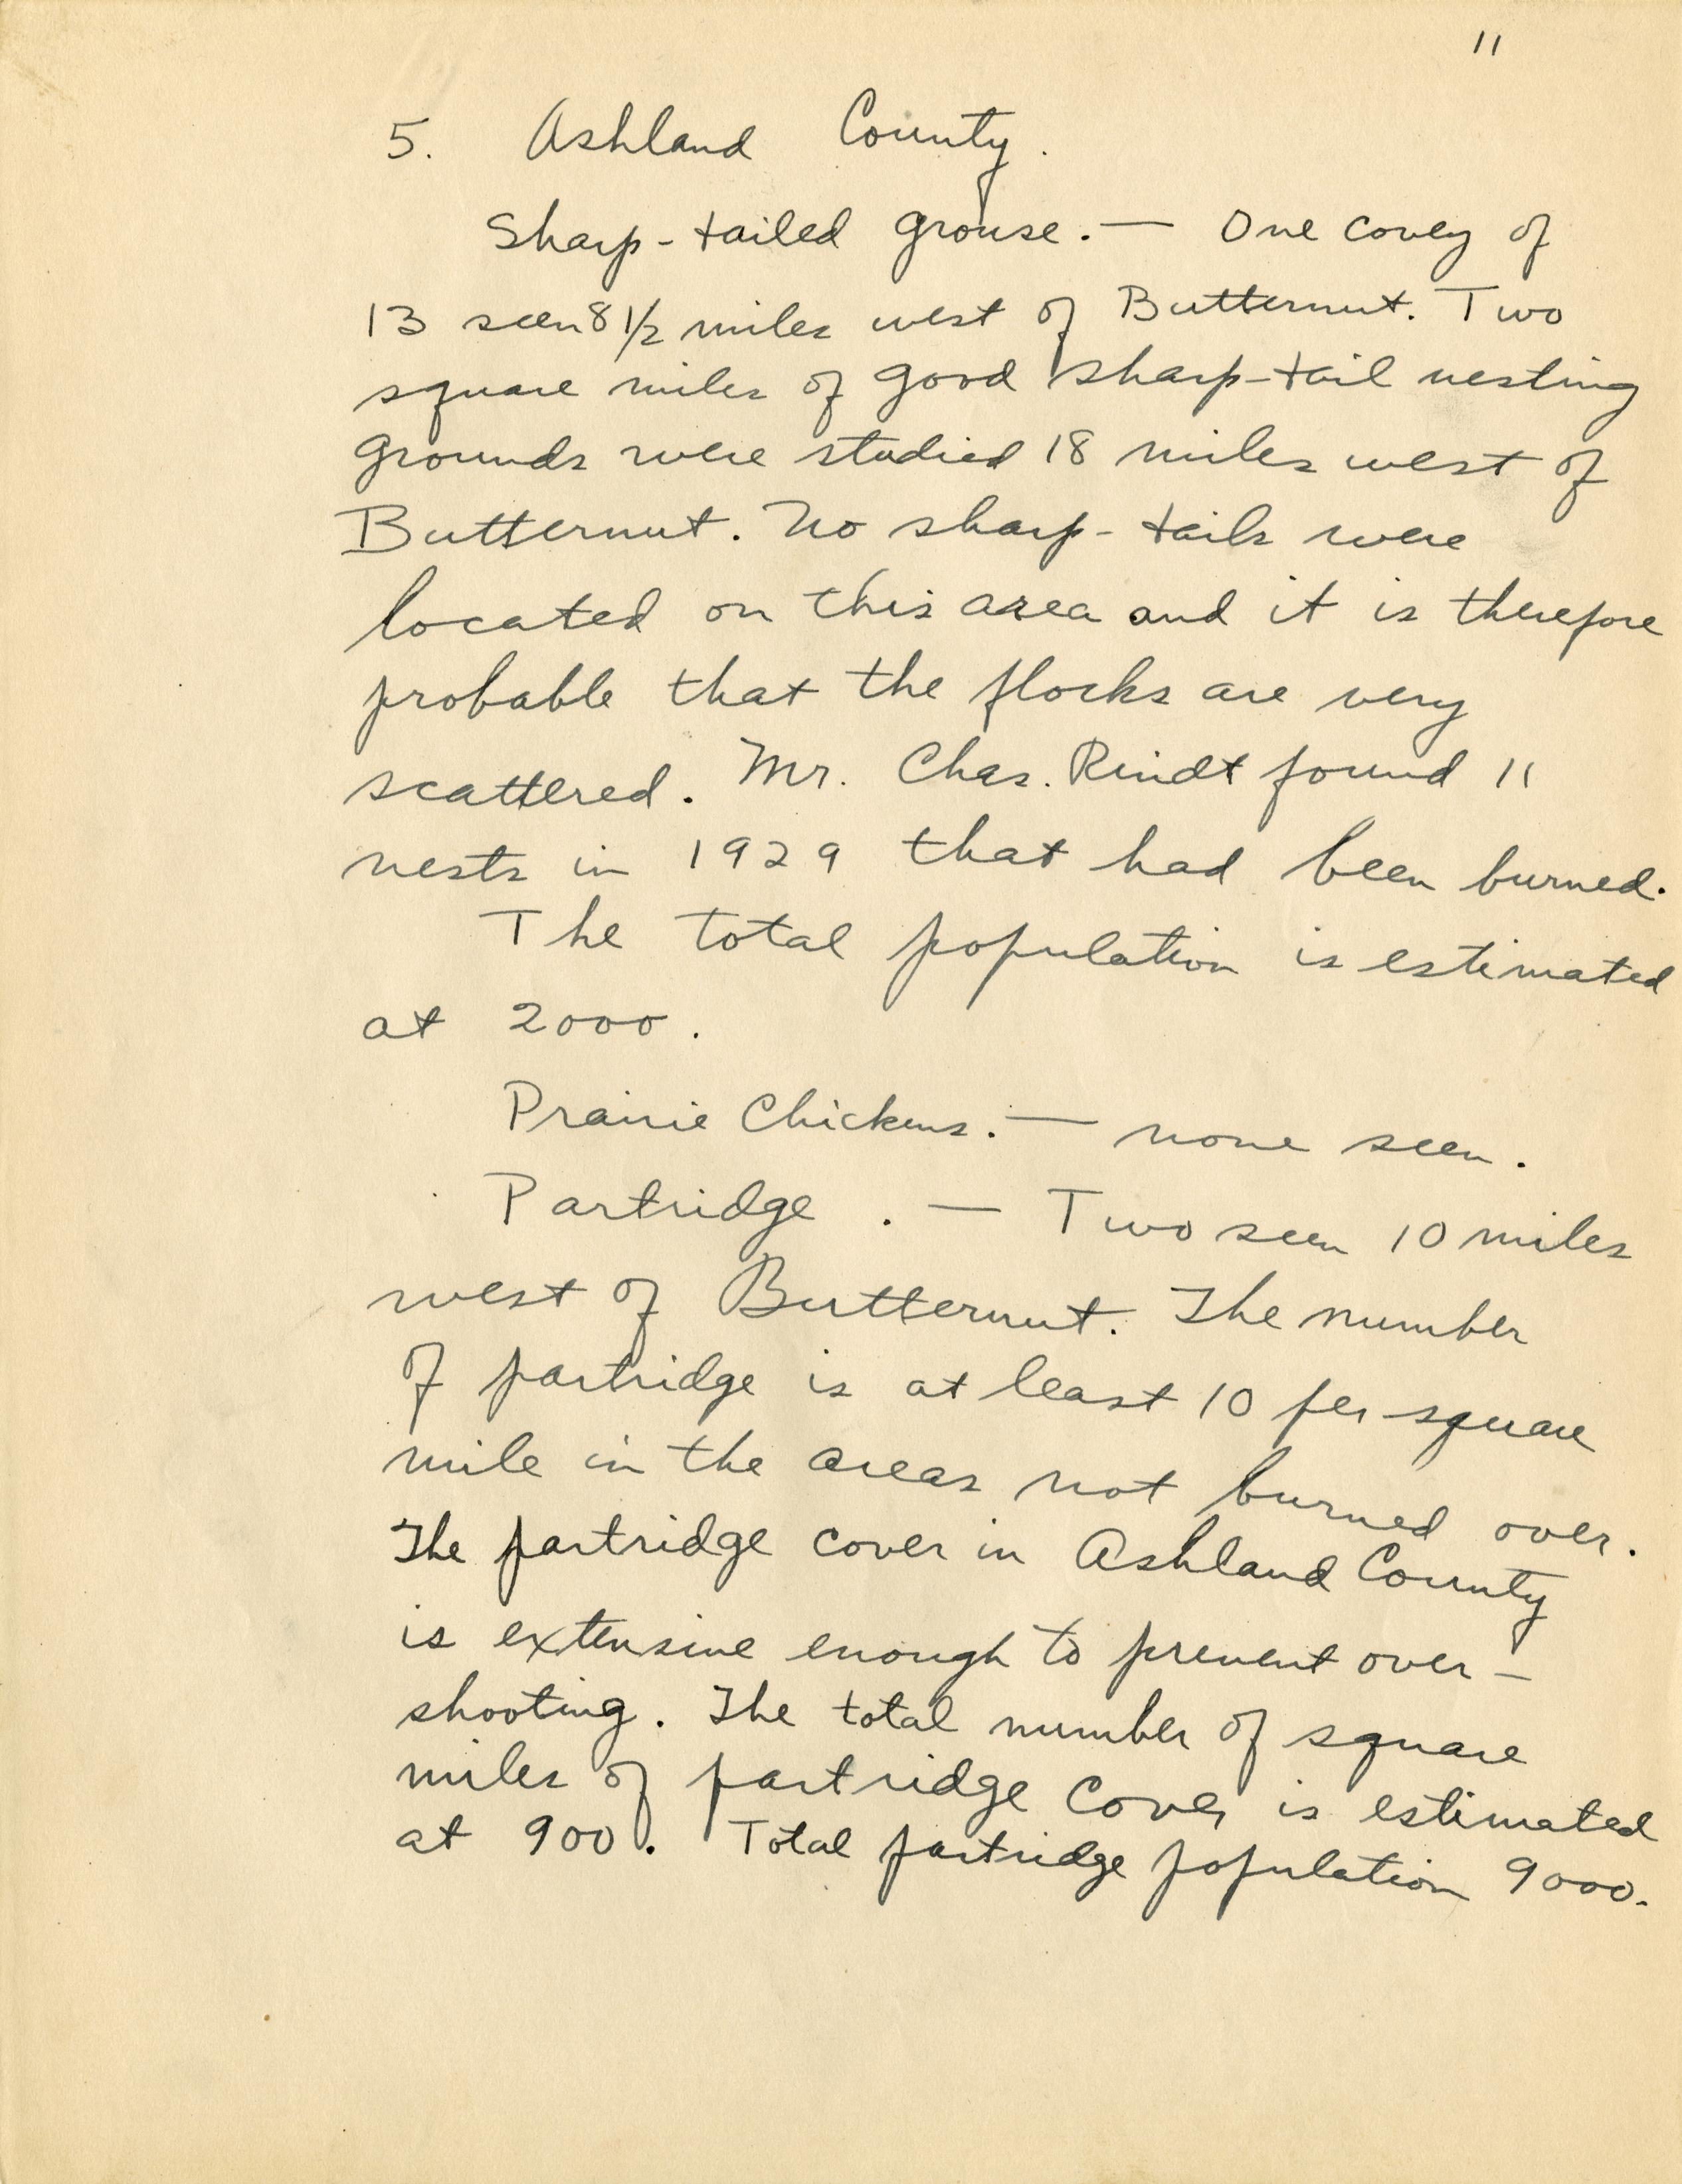 11
5. Ashland County.
Sharp-tailed grouse. — One covey of
13 seen 8 1/2 miles west of Butternut. Two
square miles of good sharp-tail nesting
grounds were studied 18 miles west of
Butternut. No sharp-tails were
located on this area and it is therefore
probable that the flocks are very
scattered. Mr. Chas. Rindt found 11
nests in 1929 that had been burned.
The total population is estimated
at 2000.
Prairie Chickens. — none seen.
Partridge. — Two seen 10 miles
west of Butternut. The number
of partridge is at least 10 per square
mile in the areas not burned over.
The partridge cover in Ashland County
is extensive enough to prevent over-
shooting. The total number of square
miles of partridge cover is estimated
at 900. Total partridge population 9000.